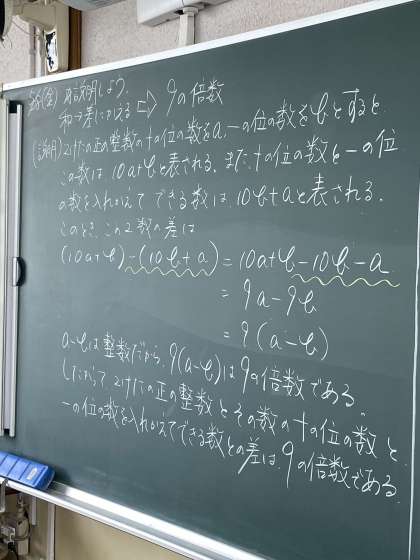 説明しよう。
和→差にかえる ⇨ 9の倍数
(説明) 2けたの正の整数の十の位の数をa、一の位の数をbとすると、
この数は、10a+bと表される。また、十の位の数と一の位
の数を入れかえてできる数は、10b+aと表される。
このとき、この2数の差は
(10a+b)-(10b+a) = 10a+b-10b-a
= 9a-9b
= 9(a-b)
a-bは整数だから、9(a-b)は9の倍数である。
したがって、2けたの正の整数とその数の十の位の数と
一の位の数を入れかえてできる数との差は、9の倍数である。